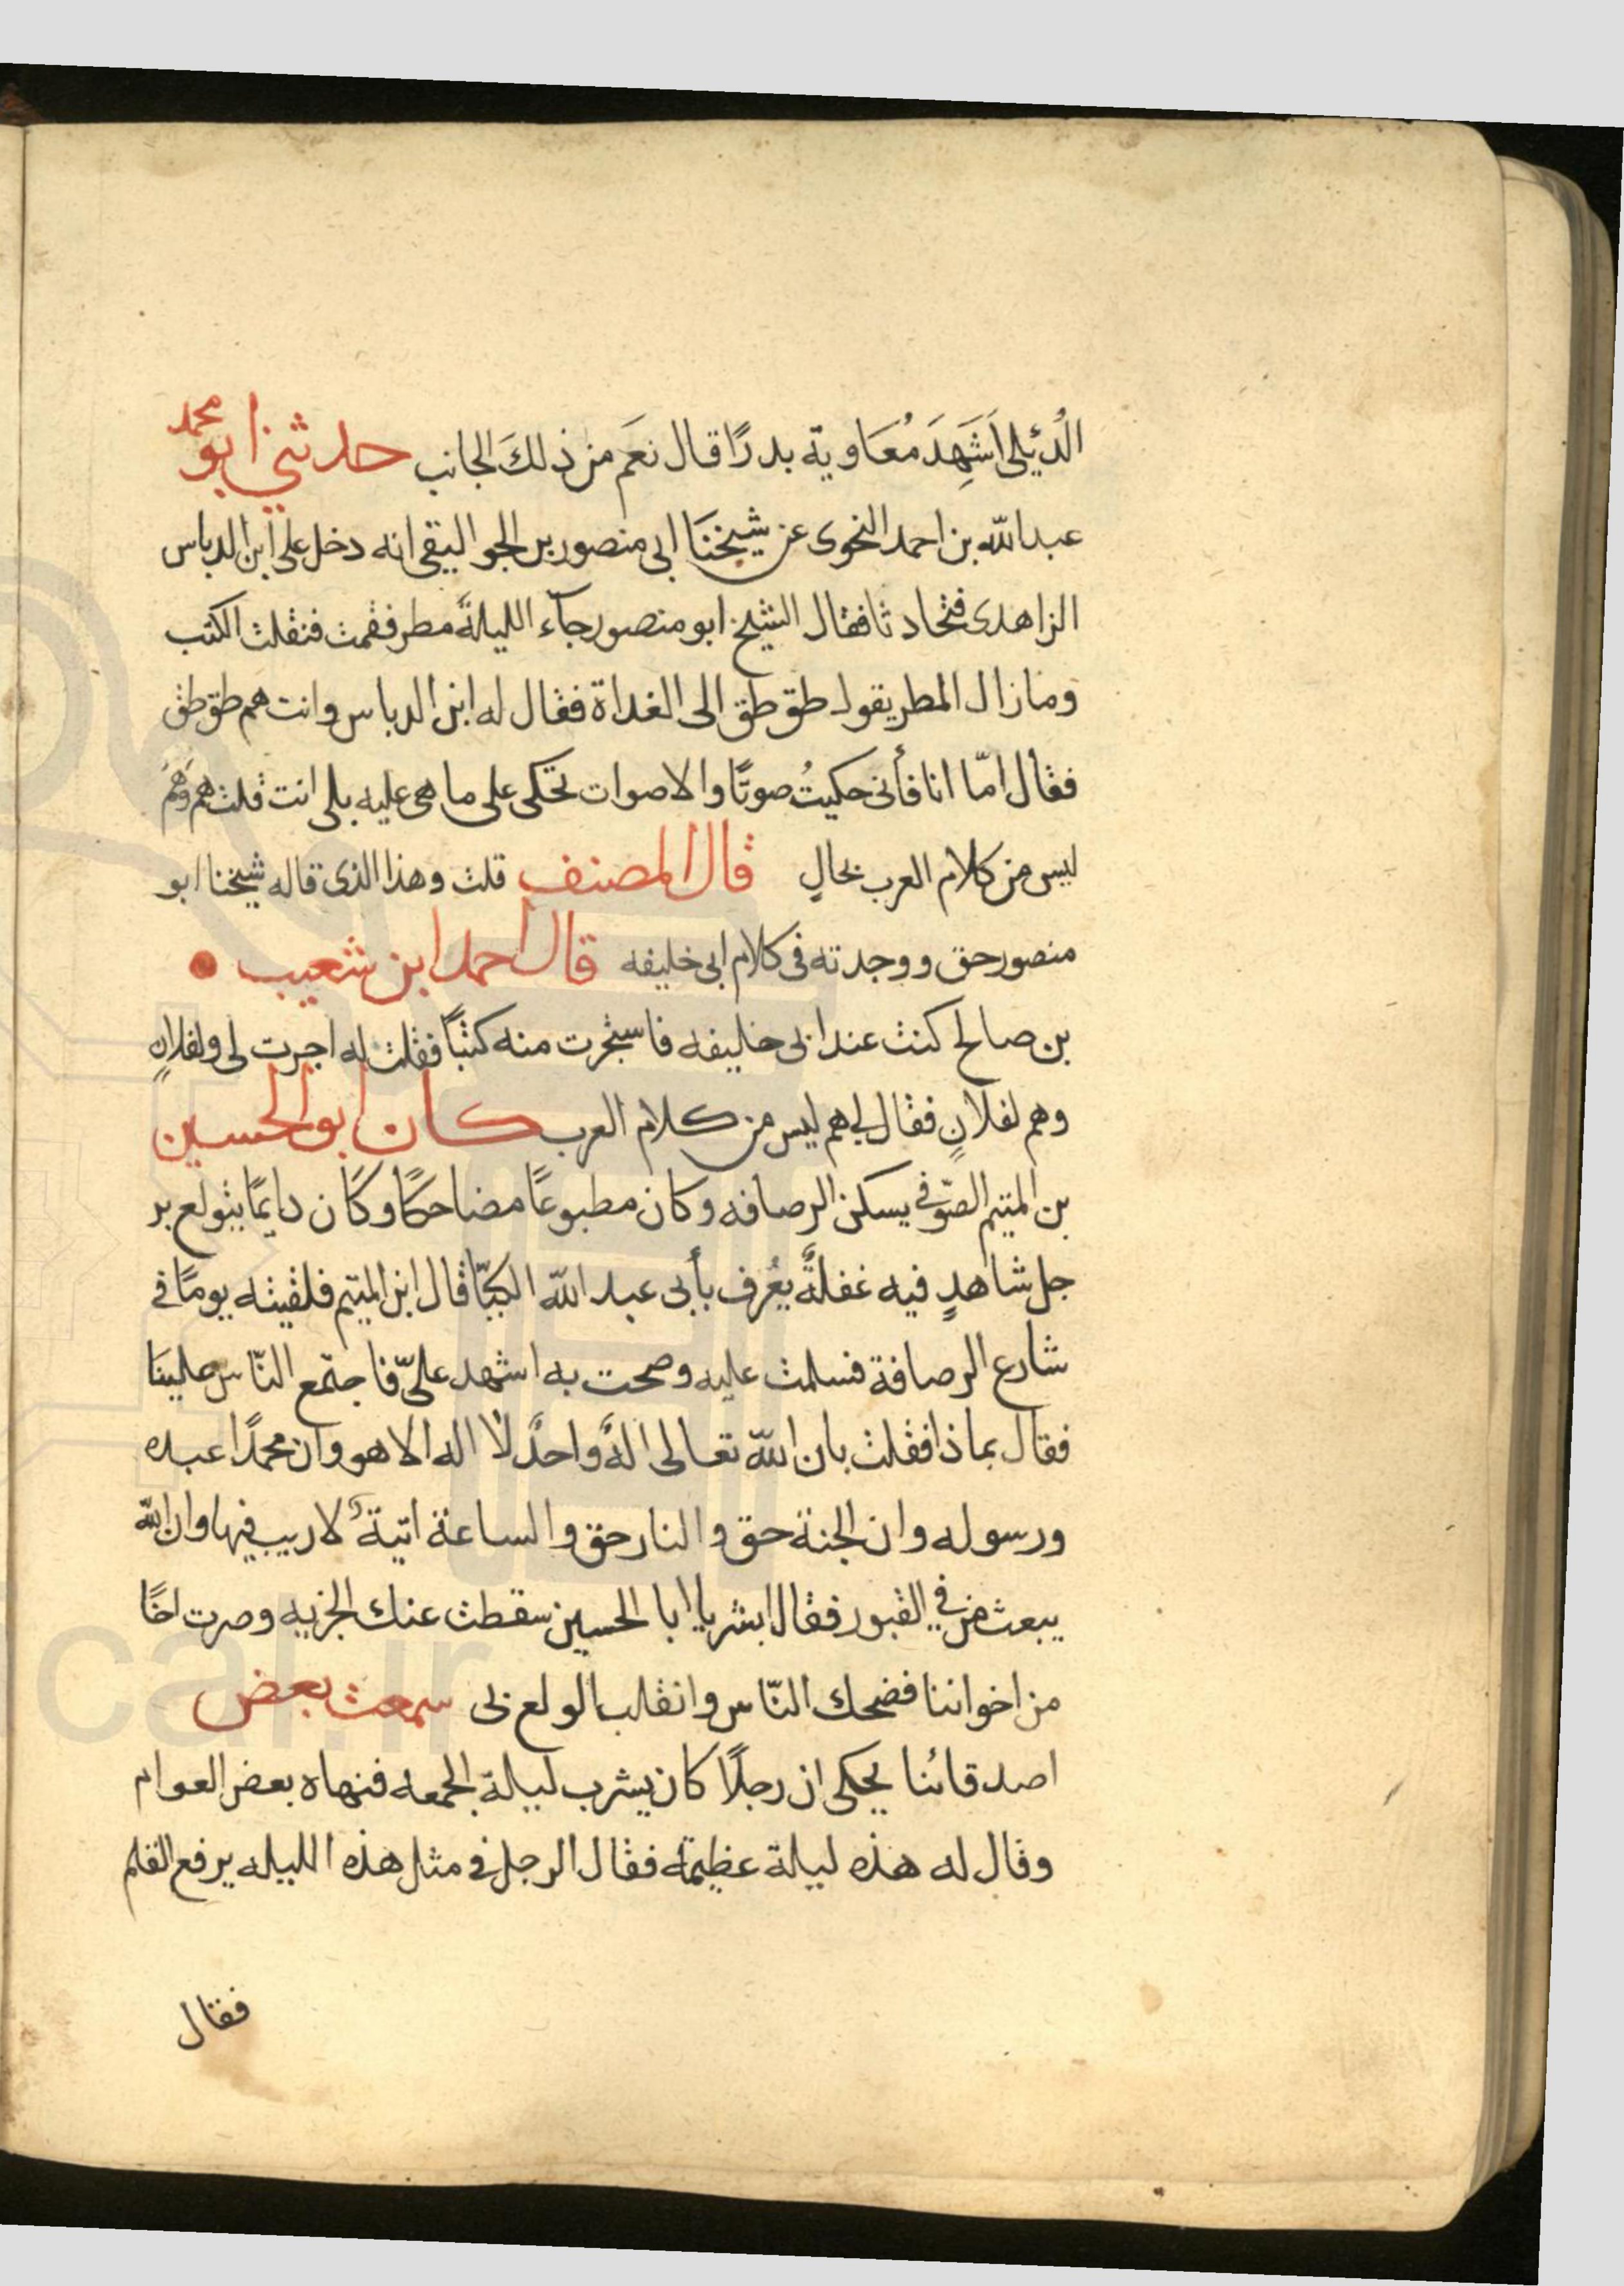 الدُئيلى اَشَهِدَ مُعَاوية بدرًا قال نعَم من ذلكَ الجانب حدثني ابو محمد
عبد الله بن احمد النحوى عن شيخنَا ابى منصور بن الجواليقى انه دخل على ابن الدباس
الزاهدى فتحادثا فقال الشيخ ابو منصور جآء الليلةَ مطر فقمت فنقلت الكتب
ومازال المطر يقول طق طق الى الغداة فقال له ابن الدباس وانت هم طق طق
فقال امّا انا فأنى حكيتُ صوتًا والاصوات تحكى على ما هى عليه بلى انت قلت هم وَهَم
ليس من كلام العرب بحالٍ قال المصنف قلت وهذا الذى قاله شيخنا ابو
منصور حق ووجدته فى كلام ابى خليفه قال احمد ابن شعيب
بن صالح كنت عند ابى خليفه فاستجرت منه كتبًا فقلت له اجرت لى ولفلانٍ
وهم لفلانٍ فقال لى هم ليس من كلام العرب كان ابو الحسين
بن المتيم الصّوفى يسكن الرصافه وكان مطبوعًا مضاحكًا وكان دايمًا يتولع بر
جل شاهدٍ فيه غفلةٌ يعُرف بأبى عبد الله الكبّا قال ابن المتيم فلقيته يومًا فى
شارع الرصافة فسلمت عليه وصحت به اشهد علىّ فاجتمع النّاس علينَا
فقال بماذا فقلت بان الله تعالى الهٌ واحدٌ لا اله الا هو وان محمدًا عبده
ورسوله وان الجنة حق والنار حق والساعة اتيةٌ لا ريب فيها وان الله
يبعث من فى القبور فقال ابشر يا ابا الحسين سقطت عنك الجزيه وصرت اخًا
من اخواننا فضحك النّاس وانقلب الولع بى سمعت بعض
اصدقائنا يحكى ان رجلًا كان يشرب ليلة الجمعه فنهاه بعض العوام
وقال له هذه ليلة عظيمة فقال الرجل فى مثل هذه الليله يرفع القلم
فقال